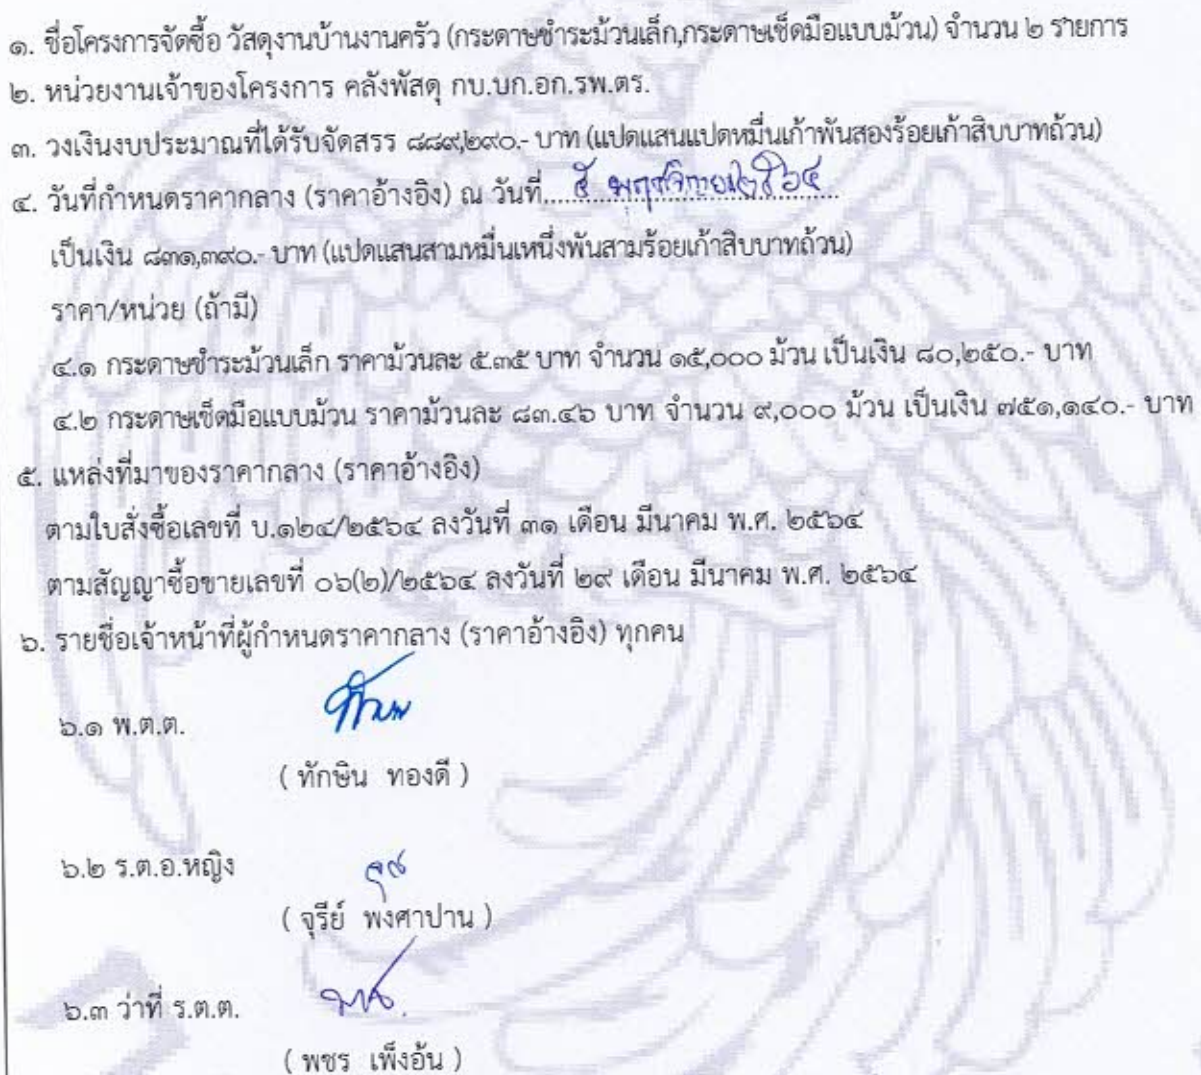 ๑. ชื่อโครงการจัดซื้อ วัสดุงานบ้านงานครัว (กระดาษชำระม้วนเล็ก,กระดาษเช็ดมือแบบม้วน) จำนวน ๒ รายการ
๒. หน่วยงานเจ้าของโครงการ คลังพัสดุ กบ.บก.อก.รพ.ตร.
๓. วงเงินงบประมาณที่ได้รับจัดสรร ๘๘๙,๒๙๐.- บาท (แปดแสนแปดหมื่นเก้าพันสองร้อยเก้าสิบบาทถ้วน)
๔. วันที่กำหนดราคากลาง (ราคาอ้างอิง) ณ วันที่.... ๕ พฤศจิกายน ๒๕๖๔
เป็นเงิน ๘๓๑,๓๙๐.- บาท (แปดแสนสามหมื่นเหนึ่งพันสามร้อยเก้าสิบบาทถ้วน)
ราคา/หน่วย (ถ้ามี)
๔.๑ กระดาษชำระม้วนเล็ก ราคาม้วนละ ๕.๓๕ บาท จำนวน ๑๕,๐๐๐ ม้วน เป็นเงิน ๘๐,๒๕๐.- บาท
๔.๒ กระดาษเช็ดมือแบบม้วน ราคาม้วนละ ๘๓.๔๖ บาท จำนวน ๙,๐๐๐ ม้วน เป็นเงิน ๗๕๑,๑๔๐.- บาท
๕. แหล่งที่มาของราคากลาง (ราคาอ้างอิง)
ตามใบสั่งซื้อเลขที่ บ.๑๒๔/๒๕๖๔ ลงวันที่ ๓๑ เดือน มีนาคม พ.ศ. ๒๕๖๔
ตามสัญญาซื้อขายเลขที่ ๐๖(๒)/๒๕๖๔ ลงวันที่ ๒๙ เดือน มีนาคม พ.ศ. ๒๕๖๔
๖. รายชื่อเจ้าหน้าที่ผู้กำหนดราคากลาง (ราคาอ้างอิง) ทุกคน
๖.๑ พ.ต.ต.
( ทักษิน ทองดี )
๖.๒ ร.ต.อ.หญิง
( จุรีย์ พงศาปาน )
๖.๓ ว่าที่ ร.ต.ต.
( พชร เพ็งอ้น )